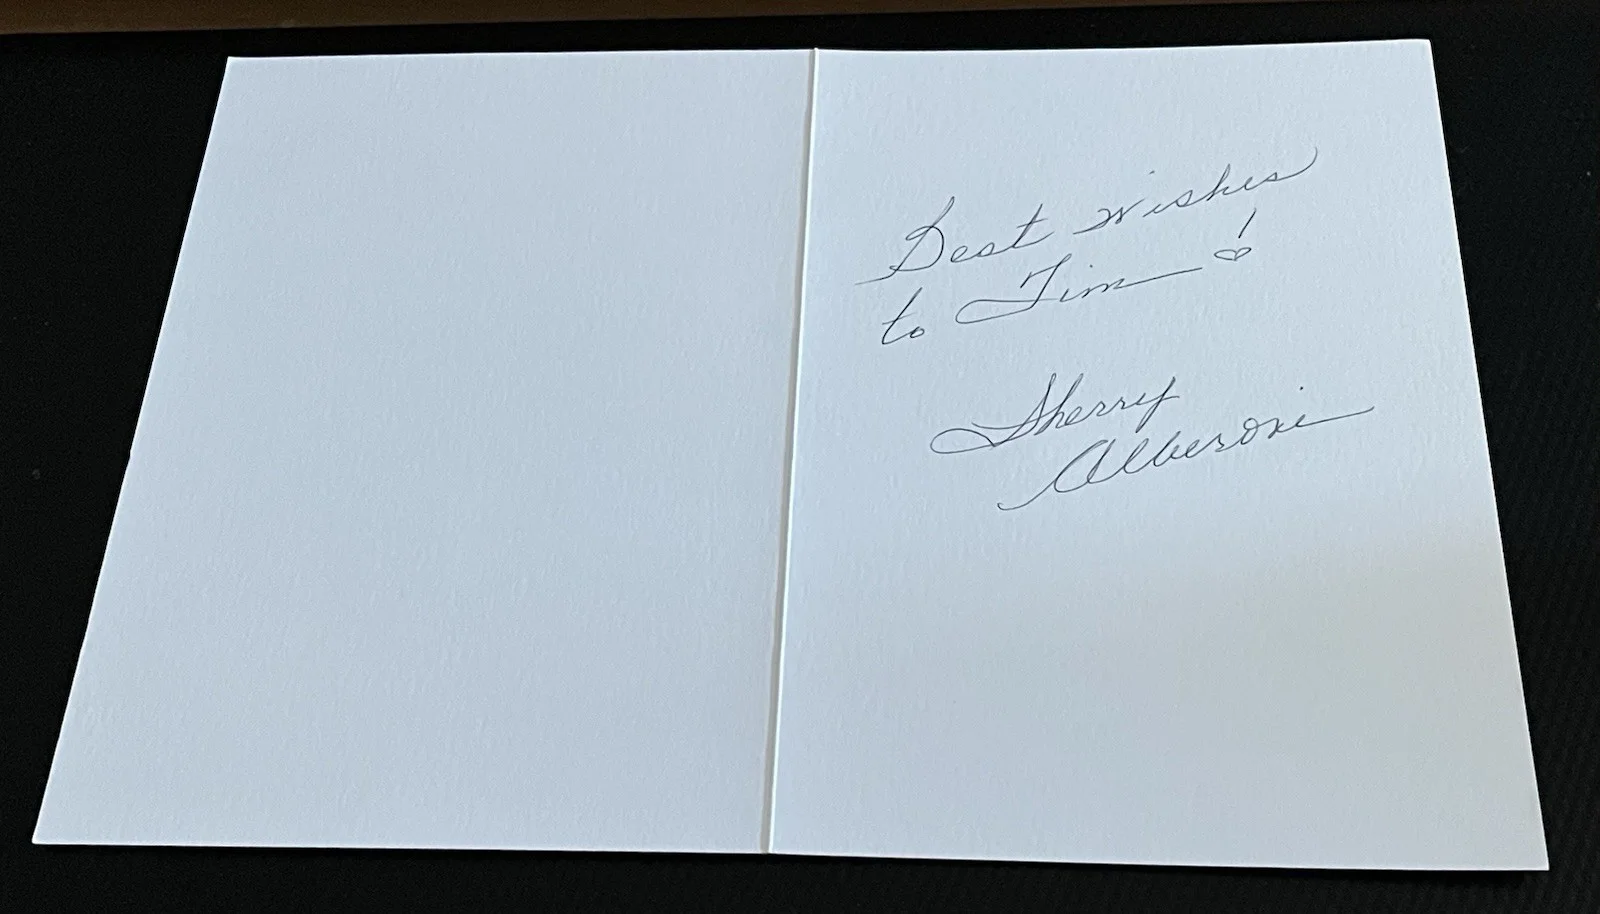 Best Wishes
to Tim!
Sherry
Alberoni